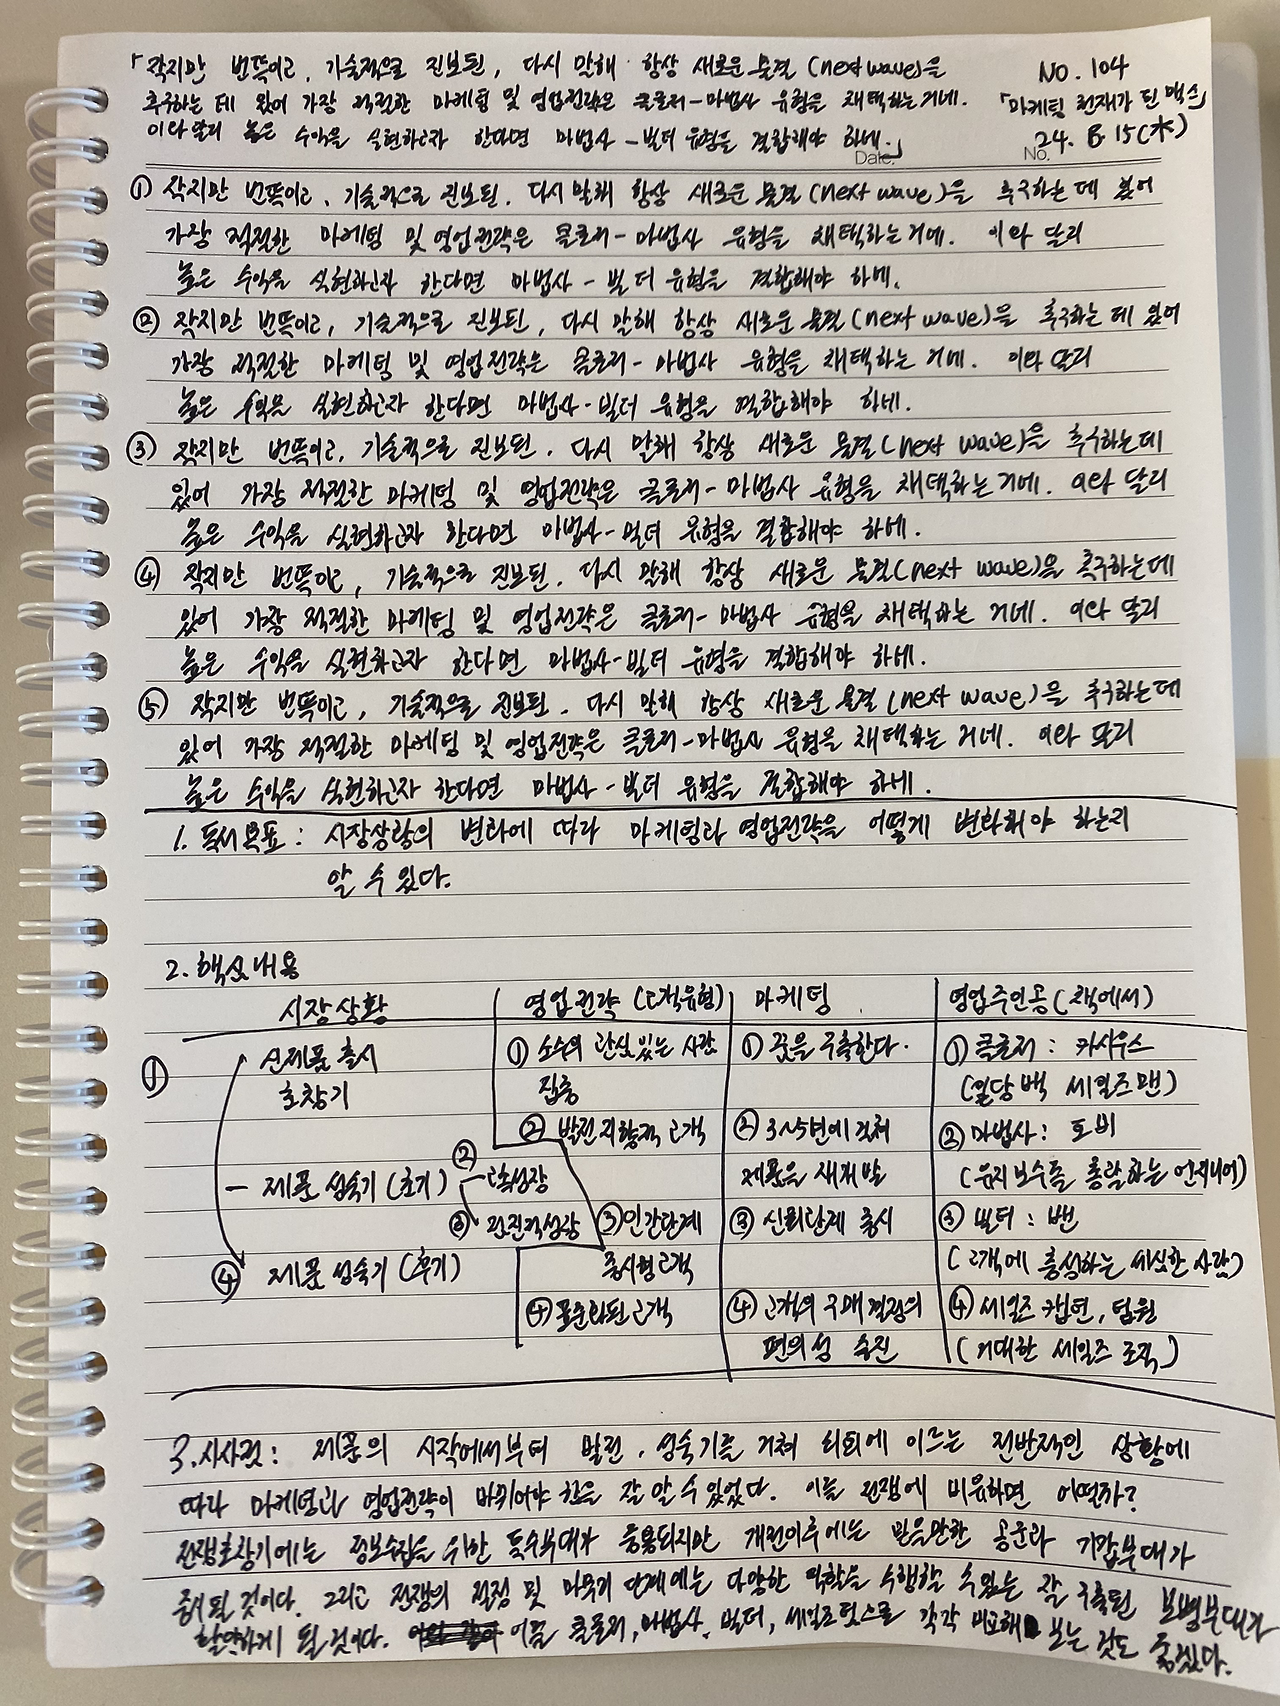 「작지만 번뜩이고, 기술적으로 진보된, 다시 말해 항상 새로운 물결(next wave)을
추구하는 데 있어 가장 적절한 마케팅 및 영업전략은 클로저-마법사 유형을 채택하는거네.
이와달리 높은 수익을 실현하고자 한다면 마법사-빌더 유형을 결합해야 하네.」
NO. 104
「마케팅 천재가 된 맥스」
24. 5. 15(水)
Date.
No.
① 작지만 번뜩이고, 기술적으로 진보된, 다시 말해 항상 새로운 물결(next wave)을 추구하는 데 있어
가장 적절한 마케팅 및 영업전략은 클로저-마법사 유형을 채택하는거네. 이와 달리
높은 수익을 실현하고자 한다면 마법사-빌더 유형을 결합해야 하네.
② 작지만 번뜩이고, 기술적으로 진보된, 다시 말해 항상 새로운 물결(next wave)을 추구하는 데 있어
가장 적절한 마케팅 및 영업전략은 클로저-마법사 유형을 채택하는 거네. 이와 달리
높은 수익을 실현하고자 한다면 마법사-빌더 유형을 결합해야 하네.
③ 작지만 번뜩이고, 기술적으로 진보된, 다시 말해 항상 새로운 물결(next wave)을 추구하는데
있어 가장 적절한 마케팅 및 영업전략은 클로저-마법사 유형을 채택하는 거네. 이와 달리
높은 수익을 실현하고자 한다면 마법사-빌더 유형을 결합해야 하네.
④ 작지만 번뜩이고, 기술적으로 진보된, 다시 말해 항상 새로운 물결(next wave)을 추구하는데
있어 가장 적절한 마케팅 및 영업전략은 클로저-마법사 유형을 채택하는 거네. 이와 달리
높은 수익을 실현하고자 한다면 마법사-빌더 유형을 결합해야 하네.
⑤ 작지만 번뜩이고, 기술적으로 진보된, 다시 말해 항상 새로운 물결(next wave)을 추구하는데
있어 가장 적절한 마케팅 및 영업전략은 클로저-마법사 유형을 채택하는 거네. 이와 달리
높은 수익을 실현하고자 한다면 마법사-빌더 유형을 결합해야 하네.
1. 독서목표 : 시장상황의 변화에 따라 마케팅과 영업전략을 어떻게 변화해야 하는지
알 수 있다.
2. 핵심내용
시장상황 영업전략(고객유형) 마케팅 영업주인공(책에서)
① 신제품 출시 ① 소수의 관심있는 사람 ① 꿈을 구축한다. ① 클로저 : 카시우스
초창기 집중 (일당백 세일즈맨)
② 발전지향적 고객 ② 3~5년에 걸쳐 ② 마법사 : 토비
제품 성숙기(초기) ② 고속성장 제품을 재개발 (유지보수를 총괄하는 엔지니어)
③ 점진적성장 ③ 인간관계 ③ 신뢰단계 출시 ③ 빌더 : 벤
④ 제품 성숙기(후기) 중시형고객 (고객에 충성하는 세심한 사람)
④ 표준화된 고객 ④ 고객의 구매결정의 ④ 세일즈 캡틴, 팀원
편의성 증진 (거대한 세일즈 조직)
3. 시사점 : 제품의 시작에서부터 발전, 성숙기를 거쳐 쇠퇴에 이르는 전반적인 상황에
따라 마케팅과 영업전략이 바뀌어야 함을 잘 알 수 있었다. 이를 전쟁에 비유하면 어떨까?
전쟁초창기에는 정보수집을 위한 특수부대가 운용되지만 개전이후에는 믿음만한 공군과 기갑부대가
중시될 것이다. 그리고 전쟁의 절정 및 마무리 단계에는 다양한 역할을 수행할 수 있는 잘 구축된 보병부대가
활약하게 될 것이다. 이를 클로저, 마법사, 빌더, 세일즈 각각 비교해 보는 것도 좋겠다.